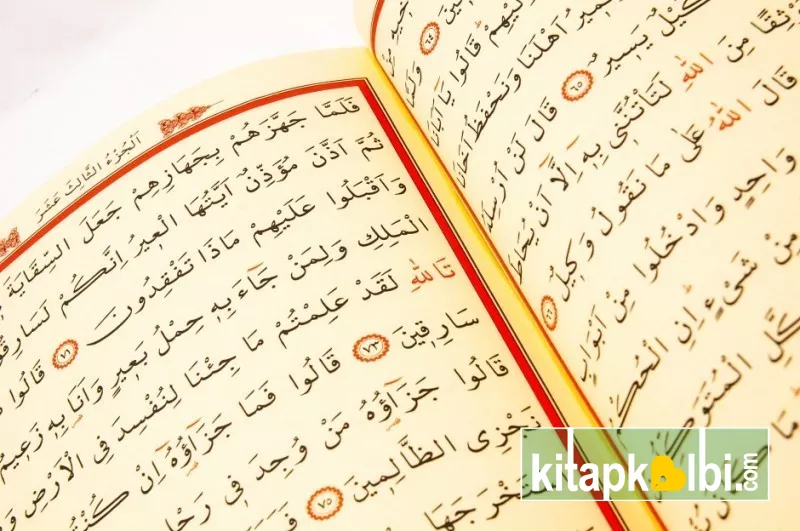 وَلَمَّا
اِلَيْهِمْ قَالُوا يَٓا اَبَانَا
نَمِيرُ اَهْلَنَا وَنَحْفَظُ اَخَانَا
كَيْلٌ يَسِيرٌ ٦٥ قَالَ لَنْ اُرْسِلَهُ
مِنَ اللّٰهِ لَتَأْتُنَّنِى بِه۪ٓ اِلَّٓا اَنْ يُحَاطَ
قَالَ اللّٰهُ عَلٰى مَا نَقُولُ وَك۪يلٌ ٦٦
وَاحِدٍ وَادْخُلُوا مِنْ اَبْوَابٍ
مِنْ شَىْءٍ اِنِ الْحُكْمُ
اَلْجُزْءُ الثَّالِثَ عَشَرَ
فَلَمَّا جَهَّزَهُمْ بِجَهَازِهِمْ جَعَلَ السِّقَايَةَ
ثُمَّ اَذَّنَ مُؤَذِّنٌ اَيَّتُهَا الْع۪يرُ اِنَّكُمْ لَسَارِقُ
وَاَقْبَلُوا عَلَيْهِمْ مَاذَا تَفْقِدُونَ ٧١ قَالُوا
الْمَلِكِ وَلِمَنْ جَٓاءَ بِه۪ حِمْلُ بَع۪يرٍ وَاَنَا بِه۪ زَع۪يمٌ
تَاللّٰهِ لَقَدْ عَلِمْتُمْ مَا جِئْنَا لِنُفْسِدَ فِى الْاَرْضِ
سَارِق۪ينَ ٧٣ قَالُوا فَمَا جَزَٓاؤُ۬هُٓ اِنْ كُنْتُمْ
قَالُوا جَزَٓاؤُ۬هُ مَنْ وُجِدَ ف۪ى رَحْلِ
نَجْزِى الظَّالِم۪ينَ ٧٥
kitapkalbi.com